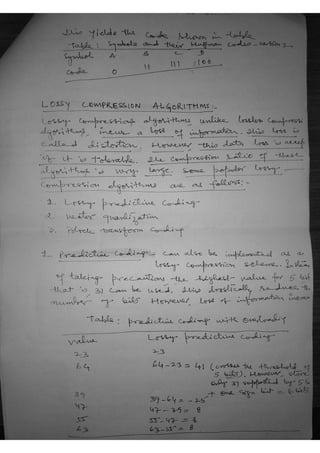 This yields the code shown in table
Table : Symbols and their Huffman codes
Symbol A B C D
Code 0 11 111 100
LOSSY COMPRESSION ALGORITHMS:-
Lossy compression algorithms unlike lossless compressi
algorithms, incur a loss of information. This loss is
called distortion. However this data loss is accep
if it is tolerable. The compression ratio of these
algorithms is very large. Some popular lossy
compression algorithms are as follows:-
1. Lossy predictive Coding
2. Vector quantization
3. Block transform Coding
1. Predictive Coding:- can also be implemented as a
lossy compression scheme.
of taking precautions the highest value for 5 bit
that is, 31 can be used. This drastically reduces th
number of bits However, loss of information increa
Table : predictive coding with overload
Value Lossy predictive coding
23 23
64 64-23 = 41 (crosses the threshold of
5 bits). However, store
only 31 supported by 5 b
+ one sign bit = 6 bits
39 39-64 = -25
47 47-39 = 8
55 55-47 = 8
63 63-55 = 8